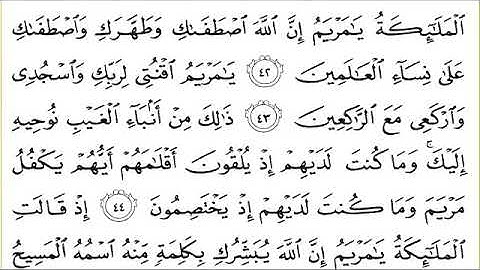 ٱلْمَلَٰٓئِكَةُ يَٰمَرْيَمُ إِنَّ ٱللَّهَ ٱصْطَفَىٰكِ وَطَهَّرَكِ وَٱصْطَفَىٰكِ
عَلَىٰ نِسَآءِ ٱلْعَٰلَمِينَ ٤٢ يَٰمَرْيَمُ ٱقْنُتِى لِرَبِّكِ وَٱسْجُدِى
وَٱرْكَعِى مَعَ ٱلرَّٰكِعِينَ ٤٣ ذَٰلِكَ مِنْ أَنۢبَآءِ ٱلْغَيْبِ نُوحِيهِ
إِلَيْكَ ۚ وَمَا كُنتَ لَدَيْهِمْ إِذْ يُلْقُونَ أَقْلَٰمَهُمْ أَيُّهُمْ يَكْفُلُ
مَرْيَمَ وَمَا كُنتَ لَدَيْهِمْ إِذْ يَخْتَصِمُونَ ٤٤ إِذْ قَالَتِ
ٱلْمَلَٰٓئِكَةُ يَٰمَرْيَمُ إِنَّ ٱللَّهَ يُبَشِّرُكِ بِكَلِمَةٍ مِّنْهُ ٱسْمُهُ ٱلْمَسِيحُ